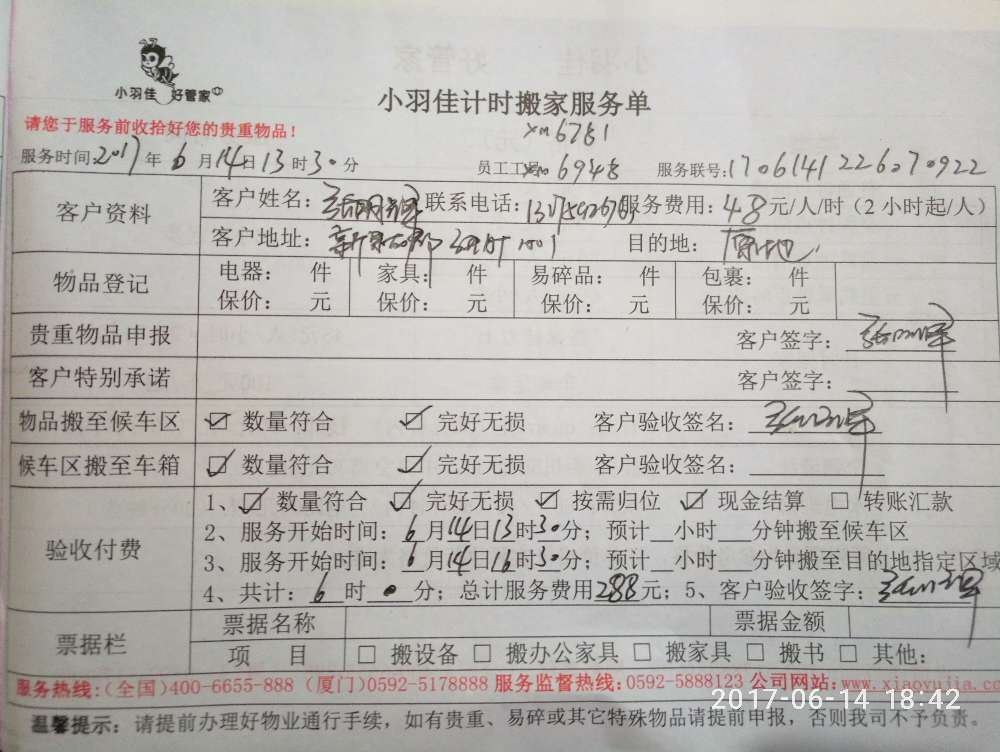 小羽佳 好管家
小羽佳计时搬家服务单
请您于服务前收拾好您的贵重物品！
XM6781
服务时间:2017年6月14日13时30分 员工工号 6948 服务联号:1706141226070922
客户资料 客户姓名: 联系电话: 服务费用:48元/人/时（2小时起/人）
客户地址: 目的地: 原地
物品登记 电器: 件 家具: 件 易碎品: 件 包裹: 件
保价: 元 保价: 元 保价: 元 保价: 元
贵重物品申报 客户签字:
客户特别承诺 客户签字:
物品搬至候车区 ☑ 数量符合 ☑ 完好无损 客户验收签名:
候车区搬至车箱 ☑ 数量符合 ☑ 完好无损 客户验收签名:
验收付费 1、☑ 数量符合 ☑ 完好无损 ☑ 按需归位 ☑ 现金结算 □ 转账汇款
2、服务开始时间:6月14日13时30分；预计__小时___分钟搬至候车区
3、服务开始时间:6月14日16时30分；预计__小时___分钟搬至目的地指定区域
4、共计:6时0分；总计服务费用288元；5、客户验收签字:
票据栏 票据名称 票据金额
项 目 □ 搬设备 □ 搬办公家具 □ 搬家具 □ 搬书 □ 其他:
服务热线:(全国)400-6655-888 (厦门)0592-5178888 服务监督热线:0592-5888123 公司网站:www.xiaoyujia.co
2017-06-14 18:42
温馨提示: 请提前办理好物业通行手续，如有贵重、易碎或其它特殊物品请提前申报，否则我司不予负责。